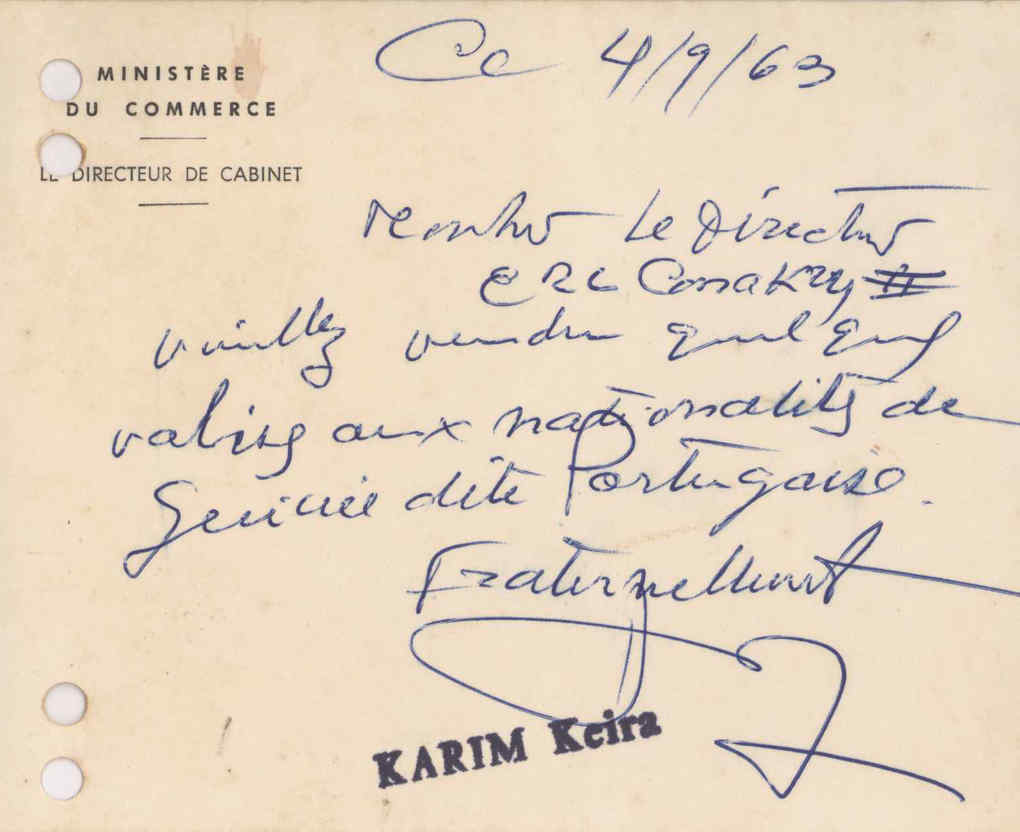 MINISTÈRE
DU COMMERCE
LE DIRECTEUR DE CABINET
Ce 4/9/63
Le Directeur
ERC Conakry II
veuillez vendre quelques
valises aux nationalités de
Guinée dite Portugaise.
Fraternellement
KARIM Keira